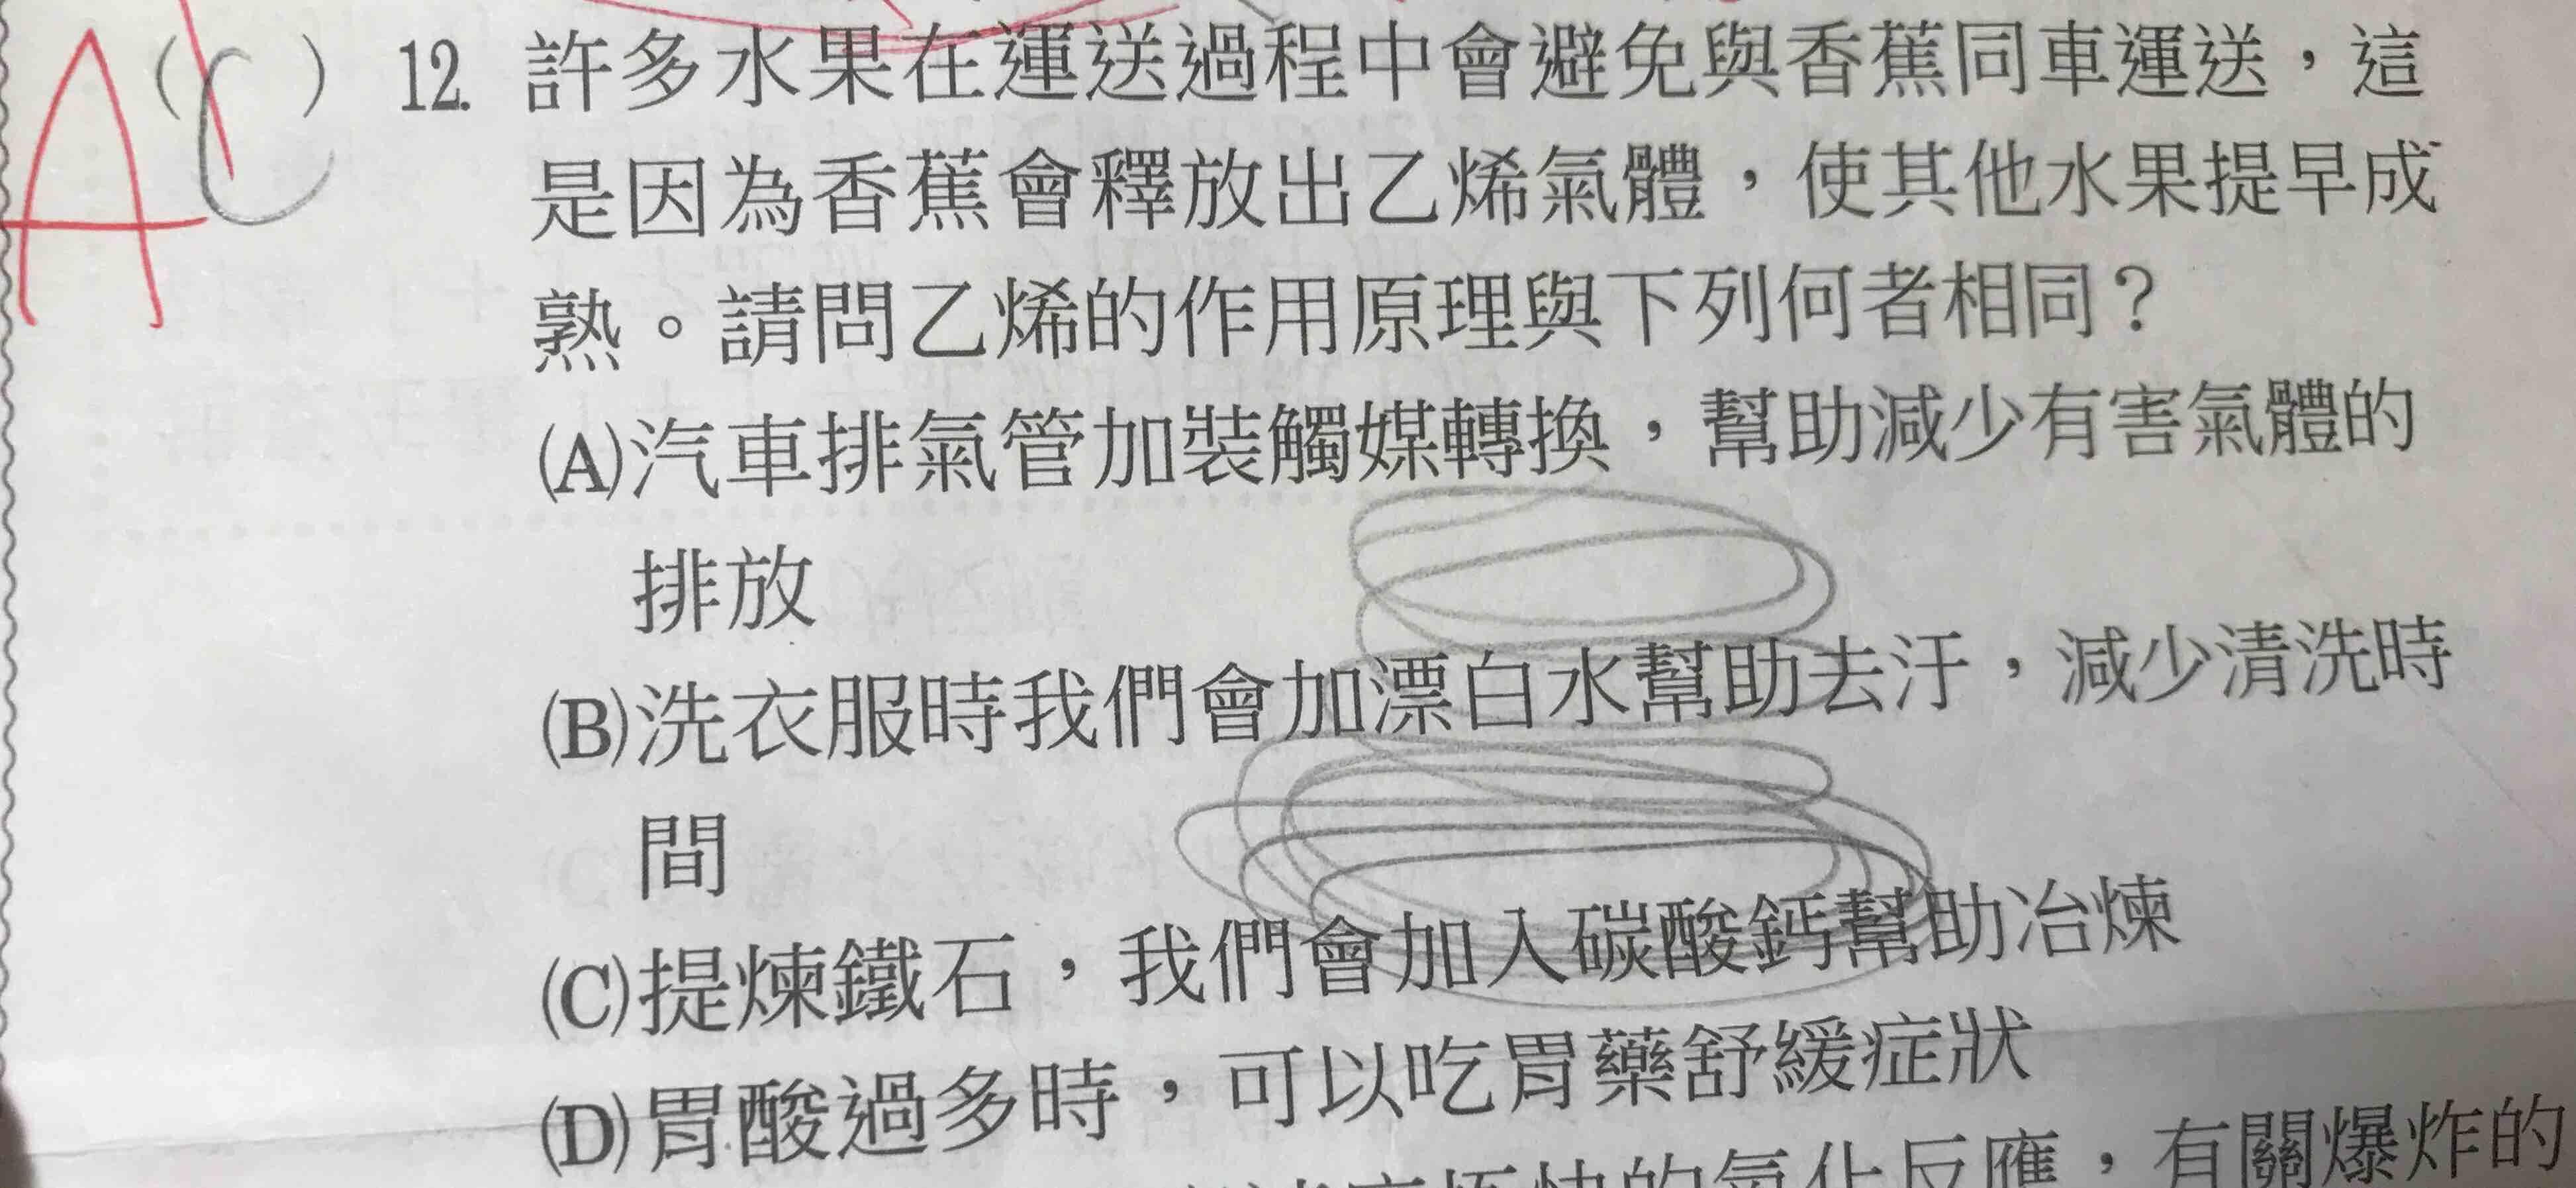 A (C) 12. 許多水果在運送過程中會避免與香蕉同車運送，這
是因為香蕉會釋放出乙烯氣體，使其他水果提早成
熟。請問乙烯的作用原理與下列何者相同？
(A)汽車排氣管加裝觸媒轉換，幫助減少有害氣體的
排放
(B)洗衣服時我們會加漂白水幫助去汙，減少清洗時
間
(C)提煉鐵石，我們會加入碳酸鈣幫助冶煉
(D)胃酸過多時，可以吃胃藥舒緩症狀
的氧化反應，有關爆炸的